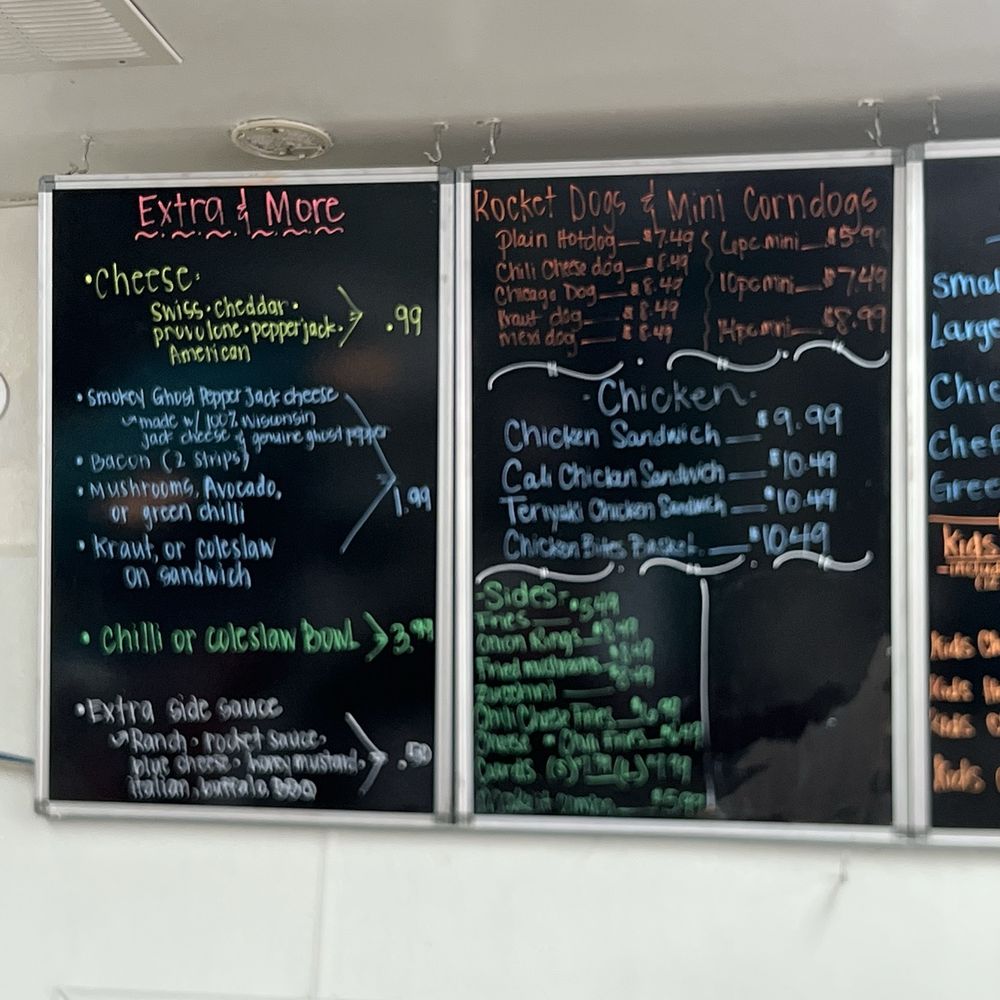 Extra & More
•Cheese:
Swiss • cheddar •
provolone • pepperjack •
American
.99
• Smokey Ghost Pepper Jack cheese
made w/ 100% Wisconsin
jack cheese & genuine ghost pepper
• Bacon (2 strips)
• Mushrooms, Avocado,
or green chilli
• Kraut, or coleslaw
on sandwich
1.99
• Chilli or coleslaw Bowl 3.99
• Extra side sauce
Ranch • rocket sauce •
blue cheese • honey mustard •
italian, buffalo BBQ
.50
Rocket Dogs & Mini Corndogs
Plain Hotdog — $7.49
Chili Cheese dog — $8.49
Chicago Dog — $8.49
Kraut dog — $8.49
mexi dog — $8.49
6pc mini — $5.99
10pc mini — $7.49
14pc mini — $8.99
- Chicken -
Chicken Sandwich — $9.99
Cali Chicken Sandwich — $10.49
Teriyaki Chicken Sandwich — $10.49
Chicken Bites Basket — $10.49
-Sides-
Fries
Onion Rings
Fried mushrooms
Zucchini
Chili Cheese Fries
Cheese • Chili Fries
Curds
Large
Chef
Kids
Kids
Kids
Kids
Kids